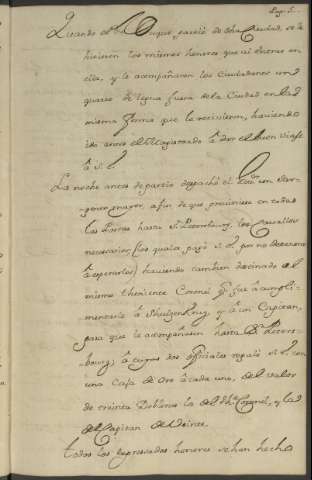 Pag. 5.
Quando el Duque partió de dha Ciudad, se le
hicieron los mismos honores que al entrar en
ella, y le acompañaron los Ciudadanos un
quarto de legua fuera de la Ciudad en la
misma forma que le recivieron, haviendo
ido antes el Magistrado à dar el buen viaje
à S. E.
La noche antes de partir despachó el un
mayor, a fin de que previniese en todas
las Postas hasta S. Petersburg, los Cavallos
necesarios, (los quales pagó S. E. por no detenerse
à esperarlos) haviendo tambien destinado al
mismo theniente Coronel qe. fué à cumpli-
mentarle à y à un Capitan,
para que le acompañasen hasta Sn. Peters-
bourg; à cuyos dos officiales regaló S. E. con
una Caja de Oro à cada uno, del valor
de treinta Doblones la del thte. Coronel, y la
del Capitan de veinte.
todos los expresados honores se han hecho